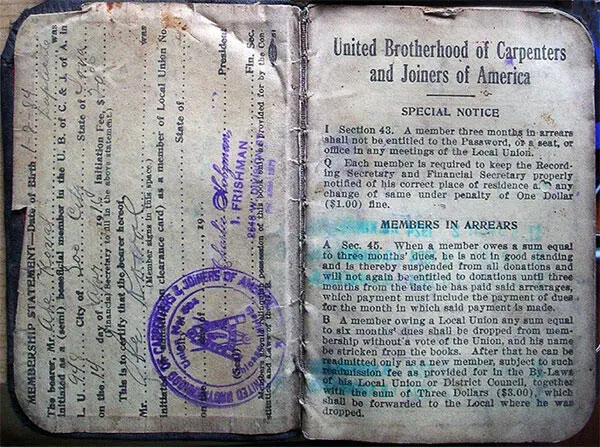 MEMBERSHIP STATEMENT—Date of Birth
The bearer, Mr. was
initiated as a (semi) beneficial member in the U. B. of C. & J. of A. in
L. U. City of State of
on the day of 19 Initiation Fee, $
(Financial Secretary to fill in the above statement.)
This is to certify that the bearer hereof
Mr. was
(Member signs in this space.)
initiated clearance card) as a member of Local Union No.
State of
on the 19
President
Charlie
I. FRISHMAN Fin. Sec.
2648 WEST
Members should possession of this book only as provided for by the Con-
stitution and Laws of the
UNITED BROTHERHOOD OF CARPENTERS & JOINERS OF AMERICA
Union No.
United Brotherhood of Carpenters
and Joiners of America
SPECIAL NOTICE
I Section 43. A member three months in arrears
shall not be entitled to the Password, or a seat, or
office in any meetings of the Local Union.
Q Each member is required to keep the Record-
ing Secretary and Financial Secretary properly
notified of his correct place of residence and any
change of same under penalty of One Dollar
($1.00) fine.
MEMBERS IN ARREARS
A Sec. 45. When a member owes a sum equal
to three months' dues, he is not in good standing
and is thereby suspended from all donations and
will not again be entitled to donations until three
months from the date he has paid said arrearages,
which payment must include the payment of dues
for the month in which said payment is made.
B A member owing a Local Union any sum equal
to six months' dues shall be dropped from mem-
bership without a vote of the Union, and his name
be stricken from the books. After that he can be
readmitted only as a new member, subject to such
readmission fee as provided for in the By-Laws
of his Local Union or District Council, together
with the sum of Three Dollars ($3.00), which
shall be forwarded to the Local where he was
dropped.